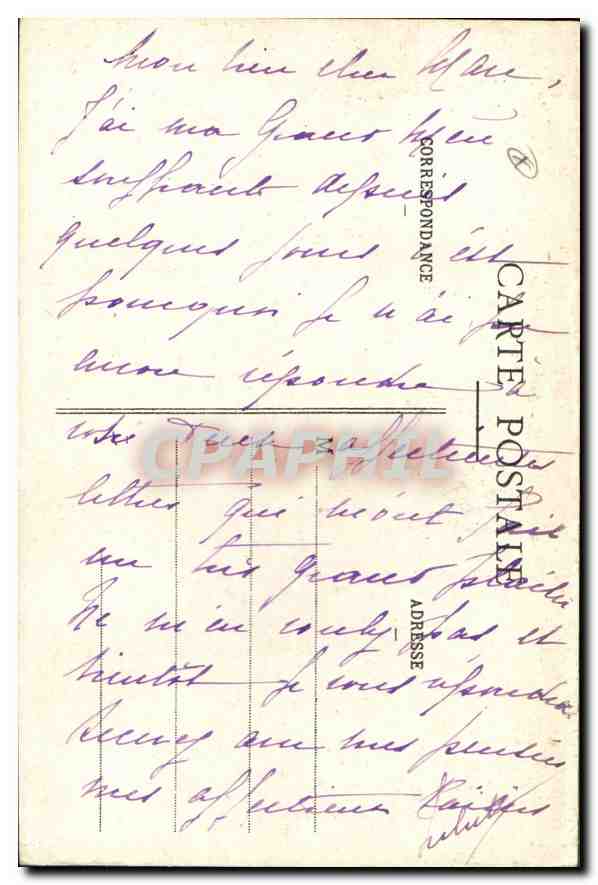 Mon bien cher Marc,
J'ai ma Grand mère
souffrante depuis
quelques jours c'est
pourquoi je n'ai pu
encore répondre à
votre affectueuses
lettres qui m'ont fait
un très grand plaisir
Ne m'en voulez pas et
bientôt je vous répondrai
Recevez avec mes pensées
mes affectueux baisers
CORRESPONDANCE
CARTE POSTALE
M
ADRESSE
CPAPHIL